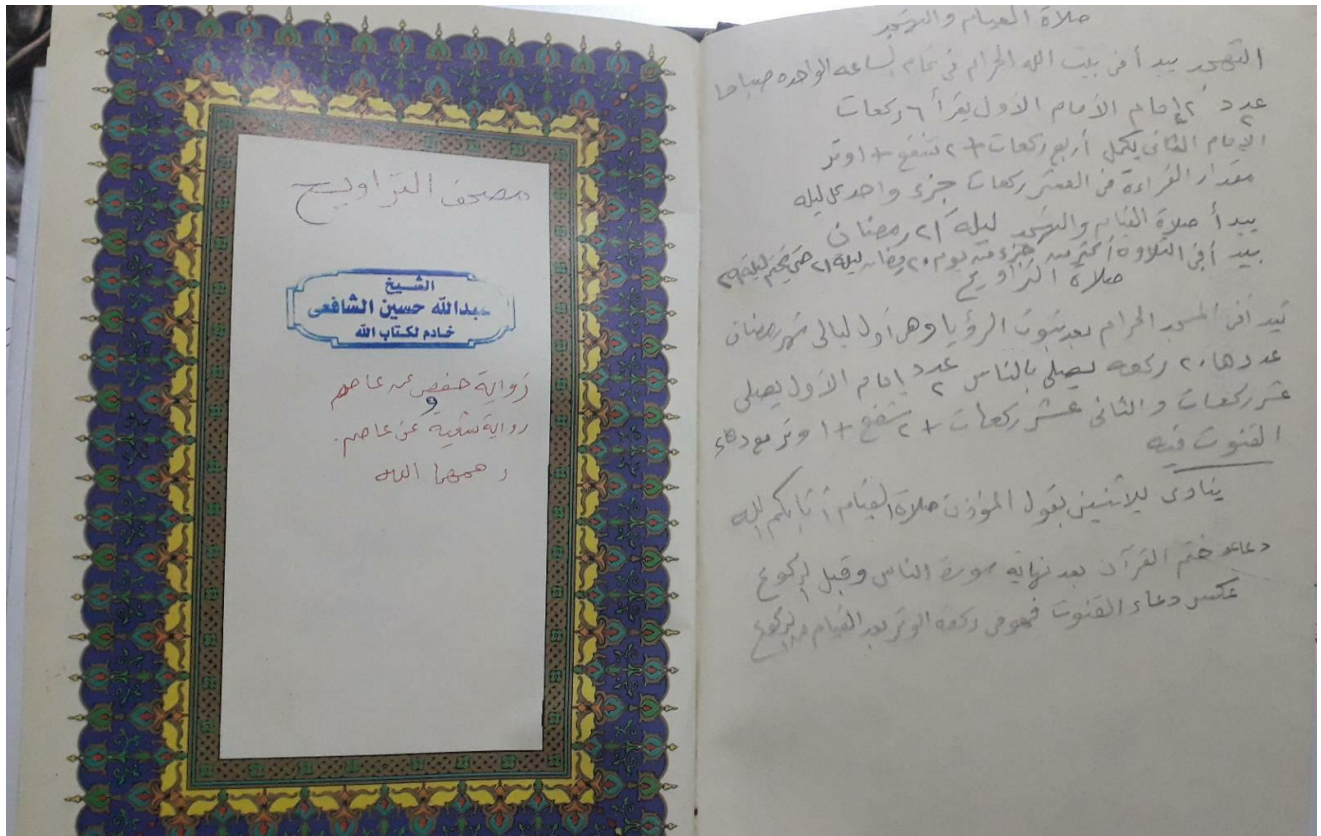 صلاة القيام والتهجد
التهجد يبدأ فى بيت الله الحرام فى تمام الساعه الواحده صباحا
عدد ٢ إمام الأمام الأول يقرأ ٦ ركعات
الإمام الثانى يكمل أربع ركعات + ٢ شفع + ١ وتر
مقدار القراءة فى العشر ركعات جزء واحد كل ليله
يبدأ صلاة القيام والتهجد ليلة ٢١ رمضان
يبدأ فى التلاوة أكثر من جزء من يوم ٢٠ رمضان ليلة ٢١ حتى يختم ليلة ٢٩
صلاة التراويح
تبدأ فى المسجد الحرام بعد ثبوت الرؤيا وهى أول ليالى شهر رمضان
عددها ٢٠ ركعه يصلى بالناس عدد ٢ إمام الأول يصلى
عشر ركعات و الثانى عشر ركعات + ٢ شفع + ١ وتر مع دعاء
القنوت فيه
ينادى للاثنين بقول المؤذن صلاة القيام أثابكم الله
دعاء ختم القرآن بعد نهاية سورة الناس وقبل الركوع
عكس دعاء القنوت فهو فى ركعة الوتر بعد القيام من الركوع
مصحف التراويح
الشيخ
عبدالله حسين الشافعى
خادم لكتاب الله
رواية حفص عن عاصم
و
رواية شعبة عن عاصم.
رحمهما الله